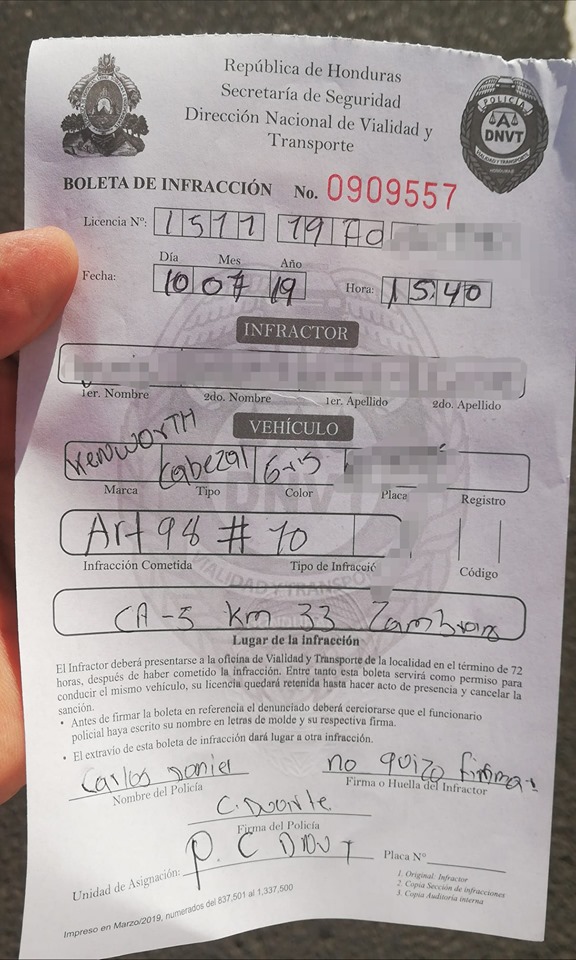 República de Honduras
Secretaría de Seguridad
Dirección Nacional de Vialidad y
Transporte
POLICIA
DNVT
VIALIDAD Y TRANSPORTE
BOLETA DE INFRACCIÓN No. 0909557
Licencia Nº: 1511 19
Día Mes Año
Fecha: 10 07 19 Hora: 15:40
INFRACTOR
1er. Nombre 2do. Nombre 1er. Apellido 2do. Apellido
VEHÍCULO
KENWORTH Cabezal Gris
Marca Tipo Color Placa Registro
Art 98 # 10
Infracción Cometida Tipo de Infracció Código
CA-5 Km 33 Zambrano
Lugar de la infracción
El Infractor deberá presentarse a la oficina de Vialidad y Transporte de la localidad en el término de 72
horas, después de haber cometido la infracción. Entre tanto esta boleta servirá como permiso para
conducir el mismo vehículo, su licencia quedará retenida hasta hacer acto de presencia y cancelar la
sanción.
• Antes de firmar la boleta en referencia el denunciado deberá cerciorarse que el funcionario
policial haya escrito su nombre en letras de molde y su respectiva firma.
• El extravio de esta boleta de infracción dará lugar a otra infracción.
Carlos Daniel no quizo firmar
Nombre del Policía Firma o Huella del Infractor
C. Duarte
Firma del Policía
P. C DNVT
Unidad de Asignación: Placa Nº
1. Original: Infractor
2. Copia Sección de infracciones
3. Copia Auditoria interna
Impreso en Marzo/2019, numerados del 837,501 al 1,337,500